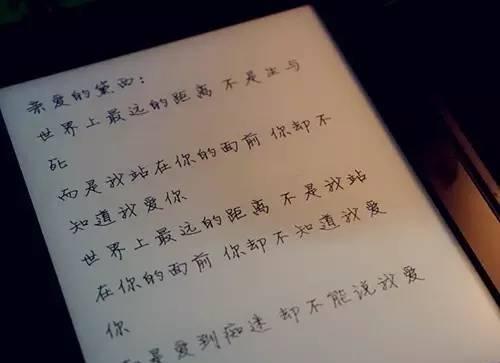 亲爱的黛西：
世界上最远的距离 不是生与
死
而是我站在你的面前 你却不
知道我爱你
世界上最远的距离 不是我站
在你的面前 你却不知道我爱
你
而是爱到痴迷 却不能说我爱